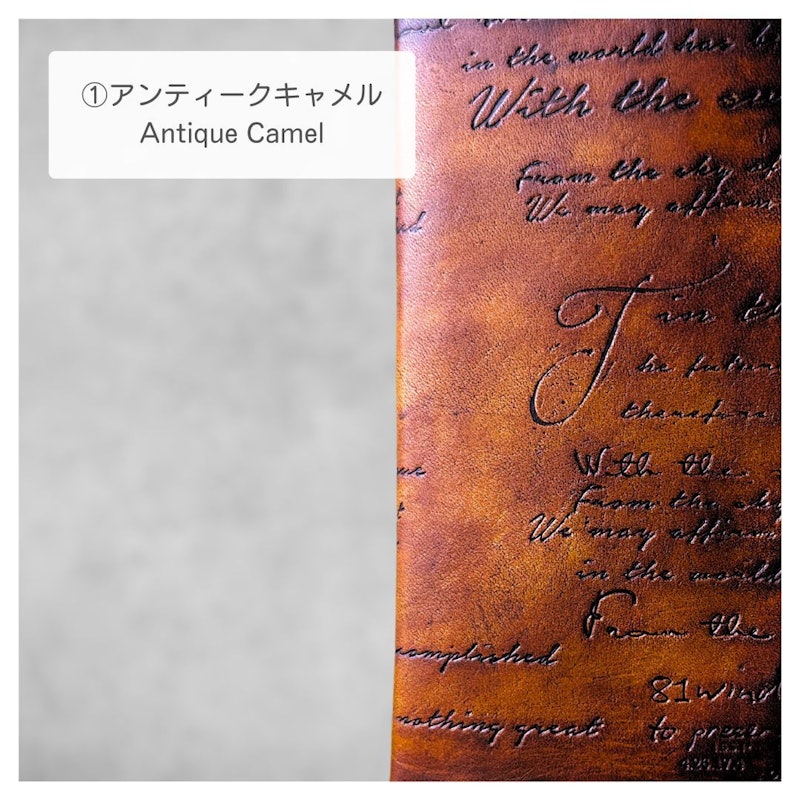 ①アンティークキャメル
Antique Camel
in the world has
With the
From the sky
We may affirm
T in
be
therefore
With the
From the sky
We may affirm
in the world
From the
accomplished
81 wind
nothing great
to